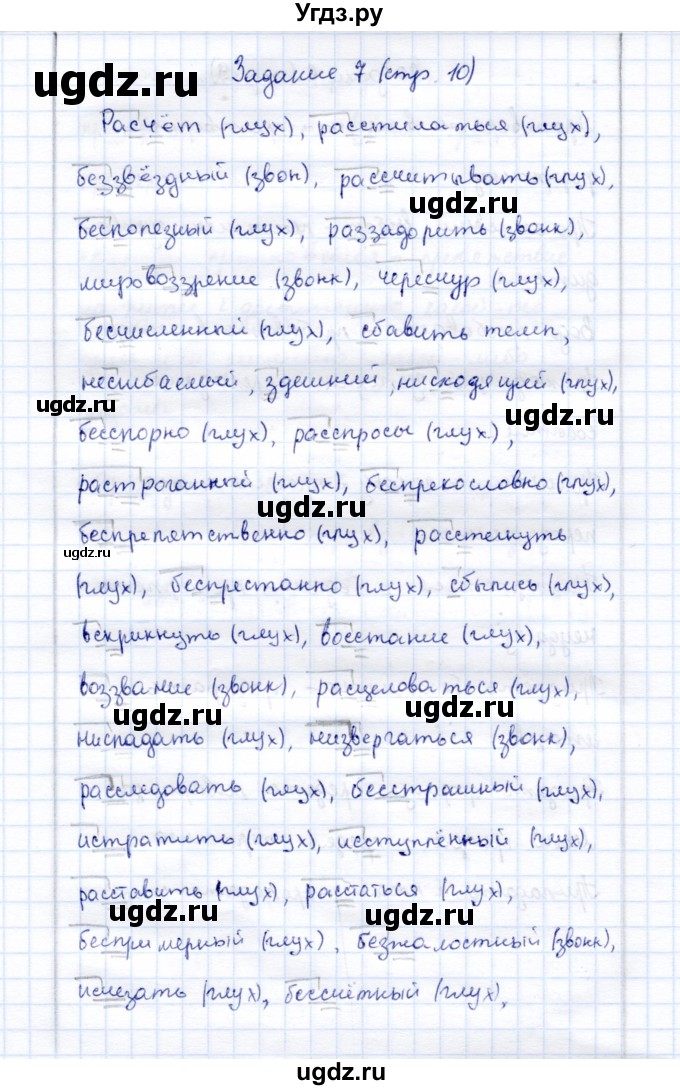 Угдз.ру
ugdz.ru
Задание 7 (стр. 10)
Расчёт (глух), расстилаться (глух),
беззвёздный (звон), рассчитывать (глух),
ugdz.ru
бесполезный (глух), раззадорить (звонк),
мировоззрение (звонк), чересчур (глух),
бесчисленный (глух), сбавить темп,
несгибаемый, здешний, нисходящий (глух),
ugdz.ru ugdz.ru
бесспорно (глух), расспросы (глух),
растроганный (глух), беспрекословно (глух),
ugdz.ru
беспрепятственно (глух), расстегнуть
ugdz.ru
(глух), беспрестанно (глух), сбылись (глух),
вскрикнуть (глух), восстание (глух),
воззвание (звонк), расцеловаться (глух),
ugdz.ru ugdz.ru
ниспадать (глух), низвергаться (звонк),
расследовать (глух), бесстрашный (глух),
истратить (глух), исступлённый (глух),
расставить (глух), расстаться (глух),
ugdz.ru ugdz.ru
беспримерный (глух), безжалостный (звонк),
исчезать (глух), бессчётный (глух),
ugdz.ru